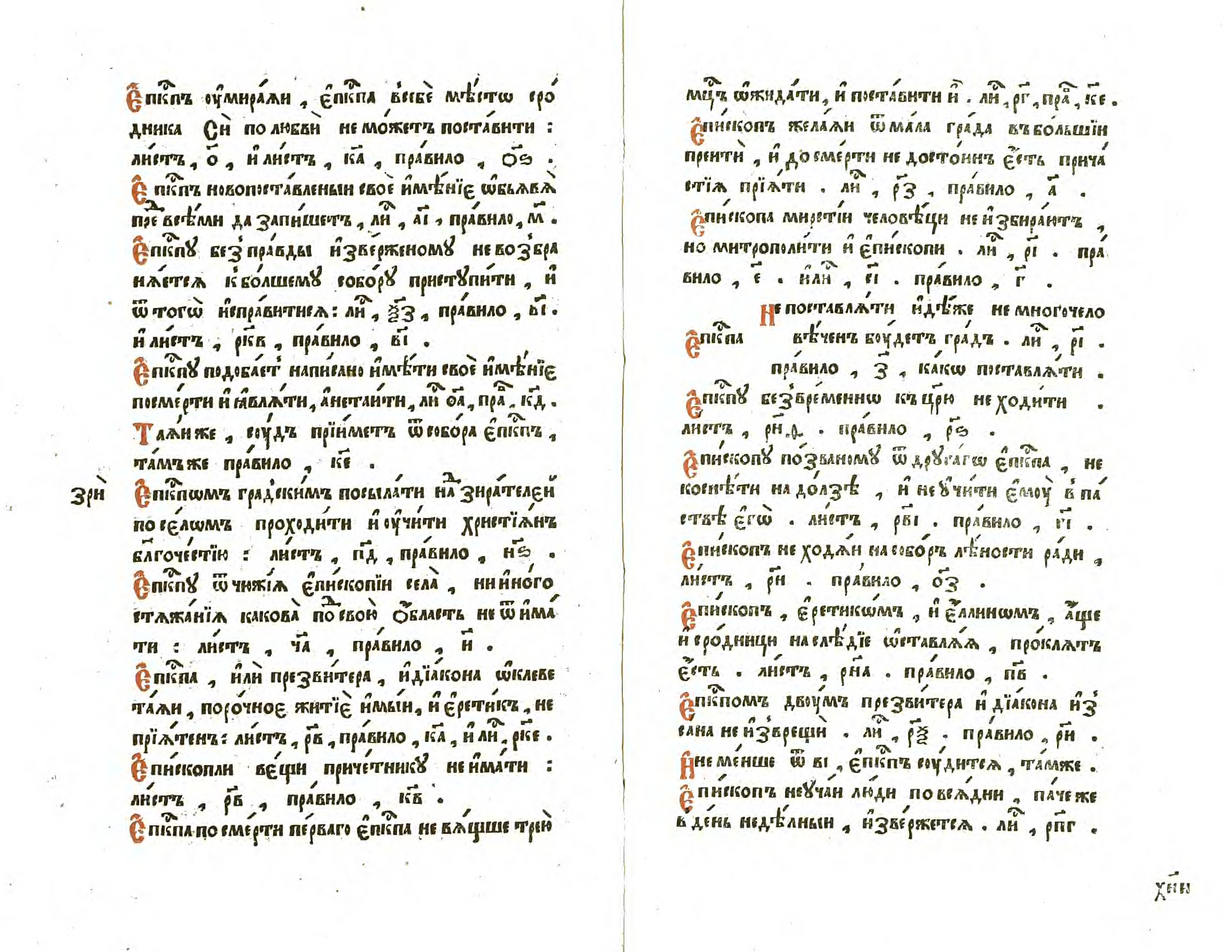 Е҆пⷭ҇кпъ ᲂу҆мира́ѧи , є҆пⷭ҇кпа в̾себѐ мѣ́стѡ сро́
дника Сѝ по любвѝ не мо́жетъ поста́вити :
ли́стъ , о҃ , и҆ ли́стъ , ка҃ , пра́вило , о҃ѕ .
Е҆пⷭ҇кпъ новопоста́вленыи своѐ и҆мѣ́нїє ѡ҆бъѧвлѧ̀
преⷣ всѣ́ми да запи́шетъ , лиⷭ҇ , а҃і , пра́вило , м҃ .
Е҆пⷭ҇кпꙋ без̾ пра́вды и҆зве́рженомꙋ не возбра
нѧ́етсѧ к̾ бо́лшемꙋ собо́рꙋ пристꙋпи́ти , и҆
ѿ тогѡ̀ и҆спра́витисѧ : лиⷭ҇ , ѯ҃з , пра́вило , в҃і .
и҆ ли́стъ , рк҃в , пра́вило , в҃і .
Е҆пⷭ҇кпꙋ подоба́етъ напи́сано и҆мѣ́ти своѐ и҆мѣ́нїє
посме́рти и҆ ꙗ҆влѧ́ти , а҆ нетаи́ти , лиⷭ҇ о҃а , праⷡ , к҃д .
Таѧ́и же , сꙋ́дъ прїи́метъ ѿ собо́ра є҆пⷭ҇кпъ ,
та́мъже пра́вило , к҃є .
зрѝ
Е҆пⷭ҇кпѡмъ градски́мъ посыла́ти наⷣзира́телєй
по се́лѡмъ проходи́ти и҆ ᲂу҆чи́ти хрⷭ҇тїѧ́нъ
бл҃гоче́стїю : ли́стъ , п҃д , пра́вило , н҃ѕ .
Е҆пⷭ҇кпꙋ ѿ чюжі́ѧ є҆писко́пїи села̀ , ни и҆но́го
стѧжа́нїѧ какова̀ поⷣ свою̀ о҆́бласть не ѿима́
ти : ли́стъ , ч҃а , пра́вило , и҃ .
Е҆пⷭ҇кпа , и҆лѝ презви́тера , и҆дїа́кона ѡ҆клеве
та́ѧи , поро́чноє житїѐ и҆мы́и , и҆ є҆рети́къ , не
прїѧ́тенъ : ли́стъ , р҃в , пра́вило , к҃а , и҆ лиⷭ҇ , рк҃е .
Е҆пи́скопли ве́щи приче́тникꙋ не и҆ма́ти :
ли́стъ , р҃в , пра́вило , к҃в .
Е҆пⷭ҇кпа по сме́рти пе́рваго є҆пⷭ҇кпа не вѧ́щше трею̀
мцⷭ҇ъ ѡ҆жида́ти , и҆ поста́вити и҆̀ . лиⷭ҇ , р҃г , праⷡ , к҃є .
Е҆пи́скопъ жела́ѧи ѿ ма́ла гра́да въ бо́льшїи
преитѝ , и҆ до сме́рти не досто́инъ є҆́сть прича́
стїѧ прїѧ́ти . лиⷭ҇ , р҃з , пра́вило , а҃ .
Е҆пи́скопа мирсті́и человѣ́цы не и҆збира́ютъ ,
но митрополи́ти и҆ є҆пи́скопи . лиⷭ҇ , р҃і . пра́
вило , є҃ . и҆лѝ , є҃і . пра́вило , г҃ .
Не поставлѧ́ти и҆дѣ́же не многочело
Е҆пⷭ҇кпа вѣ́ченъ бᲂу́детъ гра́дъ . лиⷭ҇ , р҃і .
пра́вило , з҃ , ка́кѡ поставлѧ́ти .
Е҆пⷭ҇кпꙋ без̾вре́меннѡ къ цр҃ю̀ не ходи́ти .
ли́стъ , . пра́вило , р҃ѕ .
Е҆пи́скопꙋ по́званомꙋ ѿ дрꙋга́гѡ є҆пⷭ҇кпа , не
косне́ти на до́лзѣ , и҆ не ᲂу҆чи́ти є҆мᲂу̀ в̾ па́
ствѣ є҆гѡ̀ . ли́стъ , рв҃і . пра́вило , г҃і .
Е҆пи́скопъ не ходѧ́и на собо́ръ лѣ́ности ра́ди ,
ли́стъ , р҃н . пра́вило , о҃з .
Е҆пи́скопъ , є҆ретикѡ́мъ , и҆ є҆́ллинѡмъ , а҆́ще
и҆ сро́дницы наслѣ́дїє ѡ҆ставлѧ́ѧ , про́клѧтъ
є҆́сть . ли́стъ , рн҃а . пра́вило , п҃в .
Е҆пⷭ҇кпом двᲂу́мъ презви́тера и҆ дїа́кона и҆з̾
сана не и҆зврещѝ . лиⷭ҇ , р҃ѯ . пра́вило , р҃н .
И҆ не ме́нше ѿ в҃і , є҆пⷭ҇кпъ сᲂу́дитсѧ , та́мже .
Е҆пи́скопъ неᲂуча́и лю́ди по всѧ́ дни , па́че же
в̾ де́нь недѣ́лныи , и҆зве́ржетсѧ . лиⷭ҇ , рп҃г .